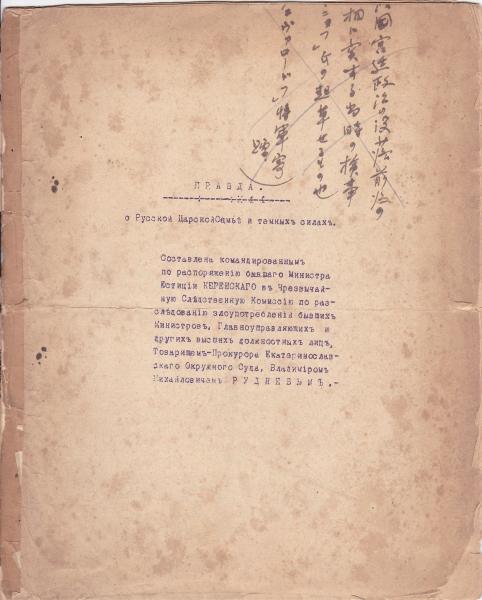 露国宮廷政治の没落前後の
相に実する当時の検事
氏の起草せるもの也
将軍寄
贈
ПРАВДА.
о Русской ЦарскойСемьѣ и темныхъ силахъ.
Составлена командированнымъ
по распоряженію бывшаго Министра
Юстиціи КЕРЕНСКАГО въ Чрезвычай-
ную Слѣдственную Комиссію по раз-
слѣдованію злоупотребленій бывшихъ
Министровъ, Главноуправляющихъ и
другихъ высшихъ должностныхъ лицъ,
Товарищемъ-Прокурора Екатеринослав-
скаго Окружного Суда, Владиміромъ
Михайловичемъ РУДНЕВЫМЪ.-